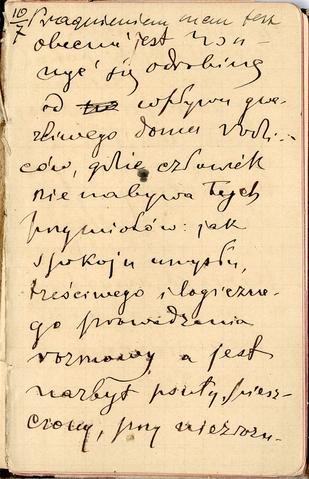 10/7 Pragnieniem mem jest
obecni jest won-
nyć się odrobinę
od wpływu gwa-
rliwego domu rodzi-
ców, gdzie człowiek
nie nabywa tych
przymiotów: jak
spokoju umysłu,
treściwego i logiczne-
go prowadzenia
rozmowy a jest
nazbyt psuty, piesz-
czony, przy niezrozu-